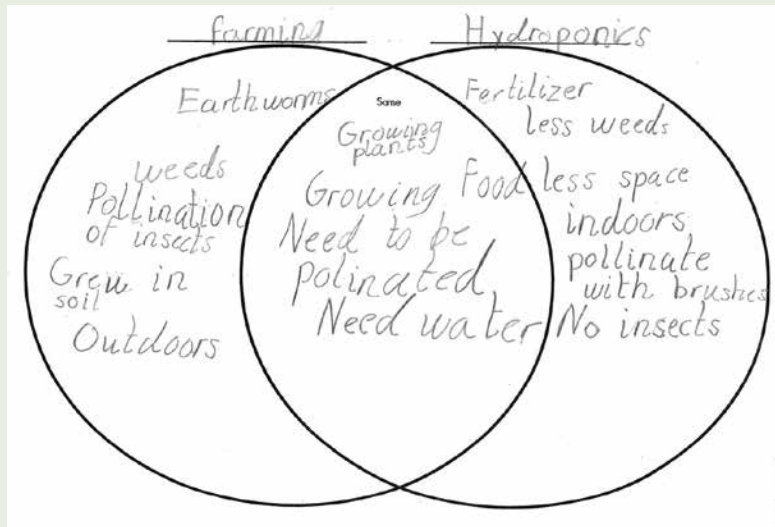 farming
Hydroponics
Earthworms
weeds
Pollination
of insects
Grew in
soil
Outdoors
Same
Growing
plants
Growing Food
Need to be
polinated
Need water
Fertilizer
less weeds
less space
indoors
pollinate
with brushes
No insects